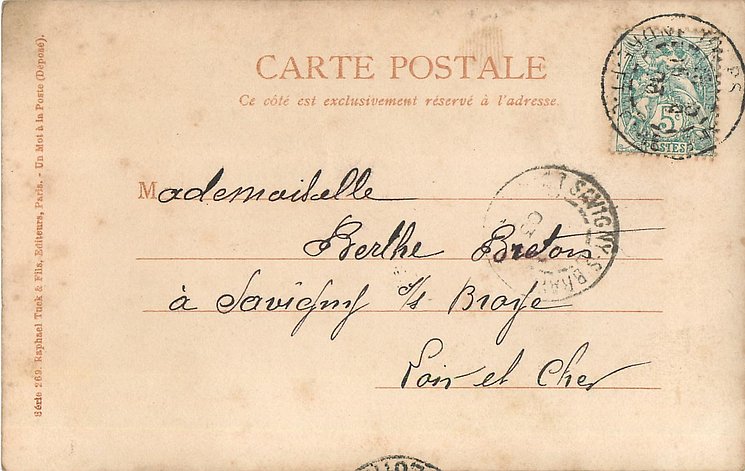 CARTE POSTALE
Ce côté est exclusivement réservé à l'adresse.
5c
POSTES
SAVIGNY-S-BRAYE
Mademoiselle
Berthe Breton
à Savigny s/s Braye
Loir et Cher
Série 269. Raphael Tuck & Fils, Editeurs, Paris. - Un Mot à la Poste (Déposé).